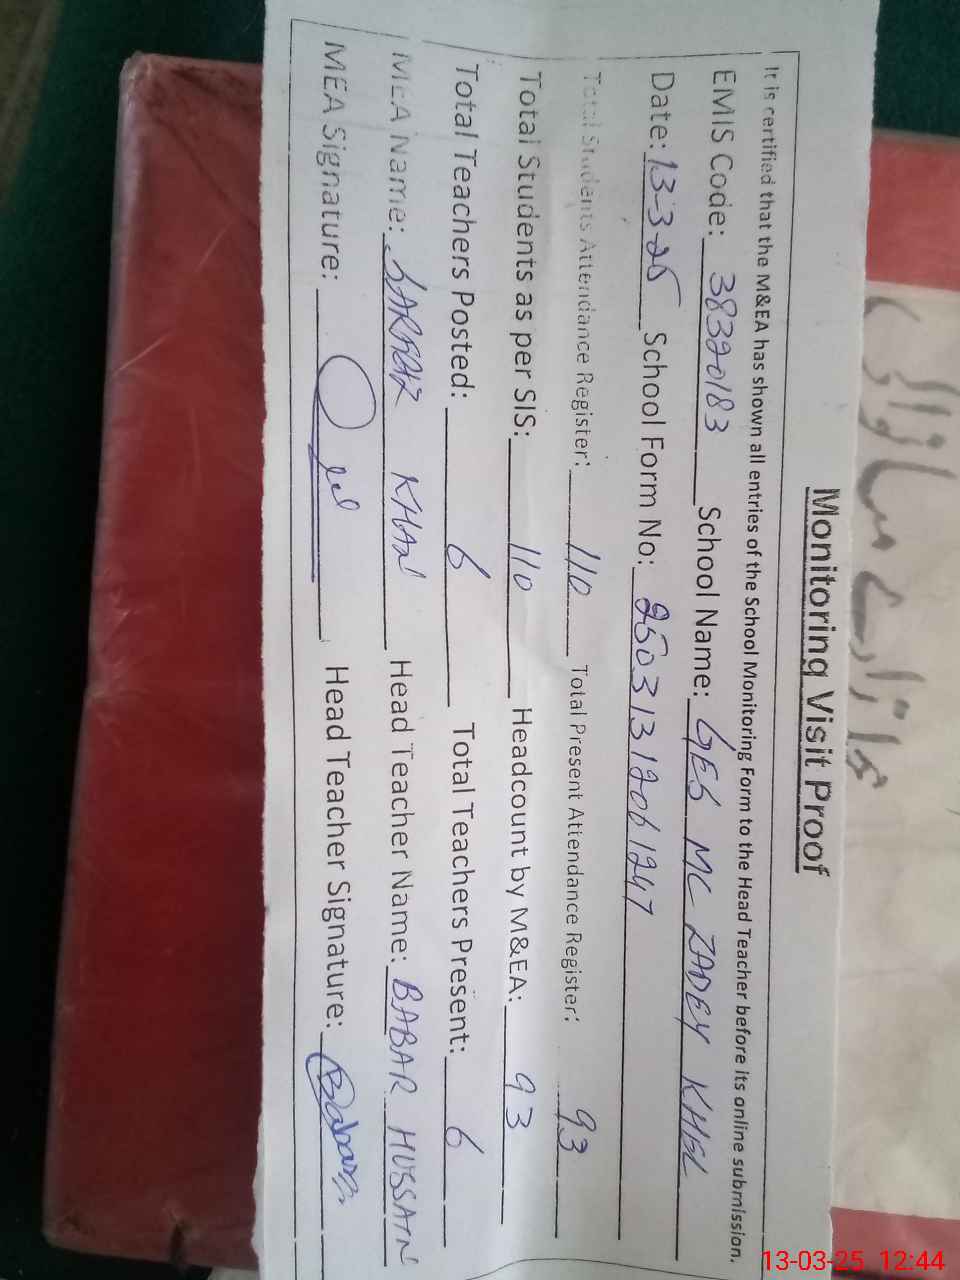 Monitoring Visit Proof
It is certified that the M&EA has shown all entries of the School Monitoring Form to the Head Teacher before its online submission.
EMIS Code: 38320183 School Name: GES MC ZADEY KHEL
Date: 13-3-25 School Form No: 25031312061247
Total Students Attendance Register: 110 Total Present Attendance Register: 93
Total Students as per SIS: 110 Headcount by M&EA: 93
Total Teachers Posted: 6 Total Teachers Present: 6
MEA Name: KHAN Head Teacher Name: BABAR HUSSAN
MEA Signature: Head Teacher Signature: Babar
13-03-25 12:44